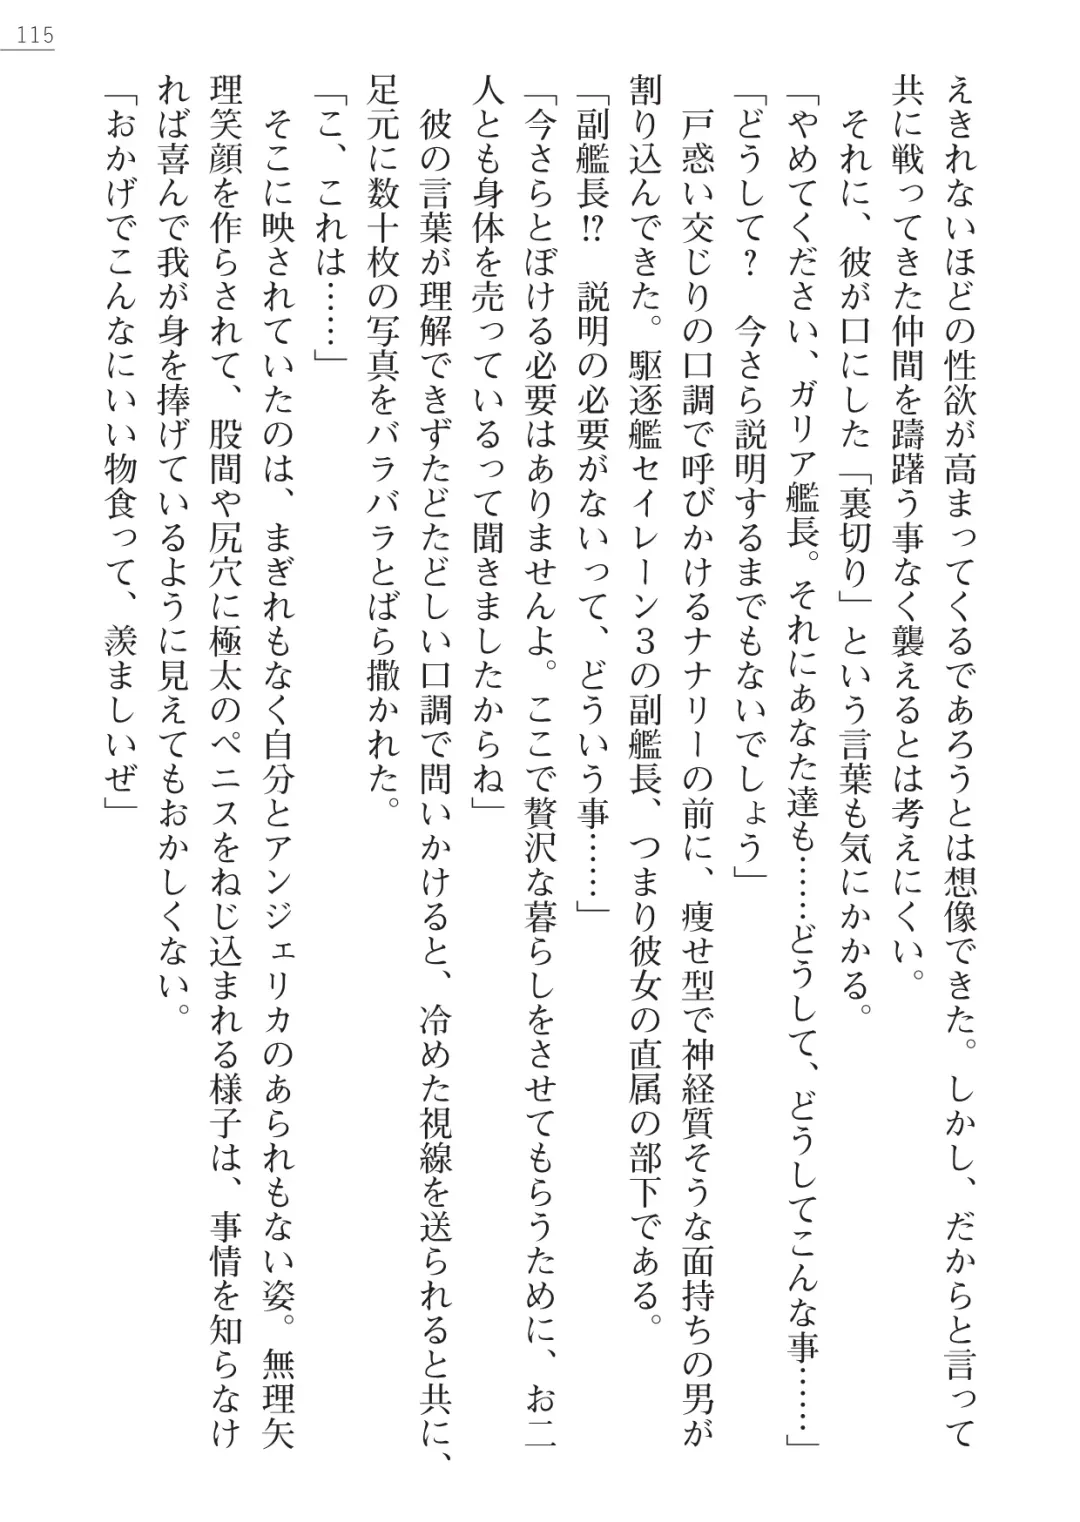 115
えきれないほどの性欲が高まってくるであろうとは想像できた。しかし、だからと言って
共に戦ってきた仲間を躊躇う事なく襲えるとは考えにくい。
それに、彼が口にした「裏切り」という言葉も気にかかる。
「やめてください、ガリア艦長。それにあなた達も……どうして、どうしてこんな事……」
「どうして？　今さら説明するまでもないでしょう」
戸惑い交じりの口調で呼びかけるナナリーの前に、痩せ型で神経質そうな面持ちの男が
割り込んできた。駆逐艦セイレーン３の副艦長、つまり彼女の直属の部下である。
「副艦長!?　説明の必要がないって、どういう事……」
「今さらとぼける必要はありませんよ。ここで贅沢な暮らしをさせてもらうために、お二
人とも身体を売っているって聞きましたからね」
彼の言葉が理解できずたどたどしい口調で問いかけると、冷めた視線を送られると共に、
足元に数十枚の写真をバラバラとばら撒かれた。
「こ、これは……」
そこに映されていたのは、まぎれもなく自分とアンジェリカのあられもない姿。無理矢
理笑顔を作らされて、股間や尻穴に極太のペニスをねじ込まれる様子は、事情を知らなけ
れば喜んで我が身を捧げているように見えてもおかしくない。
「おかげでこんなにいい物食って、羨ましいぜ」